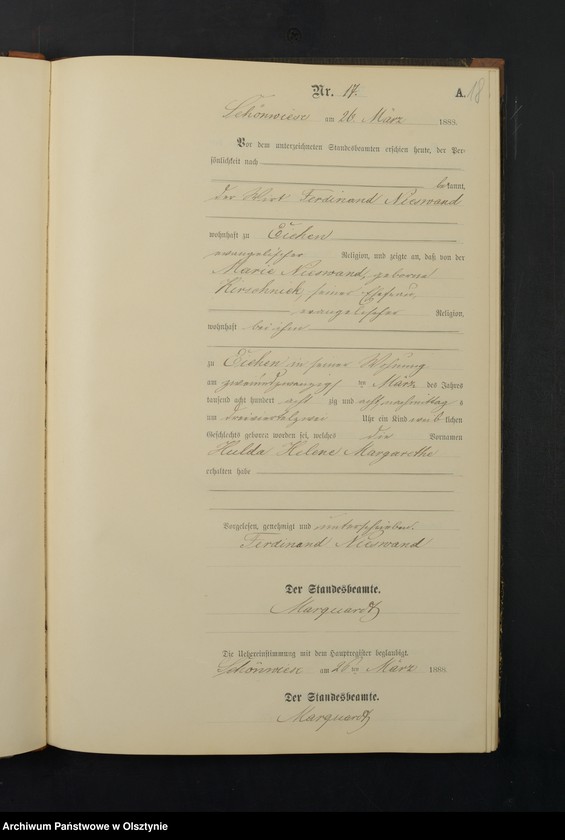 Nr. 17.
A. 18
Schönwiese am 26. März 1888.
Vor dem unterzeichneten Standesbeamten erschien heute, der Per-
sönlichkeit nach
bekannt,
der Wirt Ferdinand Nieswand
wohnhaft zu Eichen
evangelischer Religion, und zeigte an, daß von der
Marie Nieswand, geborne
seiner Ehefrau,
evangelischer Religion,
wohnhaft bei ihm
zu Eichen in seiner Wohnung
am zweiundzwanzigsten März des Jahres
tausend acht hundert achtzig und acht nachmittags
um dreiviertelzwei Uhr ein Kind weiblichen
Geschlechts geboren worden sei, welches die Vornamen
Hulda Helene Margarethe
erhalten habe
Vorgelesen, genehmigt und unterschrieben.
Ferdinand Nieswand
Der Standesbeamte.
Marquardt
Die Uebereinstimmung mit dem Hauptregister beglaubigt.
Schönwiese am 26ten März 1888.
Der Standesbeamte.
Marquardt
Archiwum Państwowe w Olsztynie